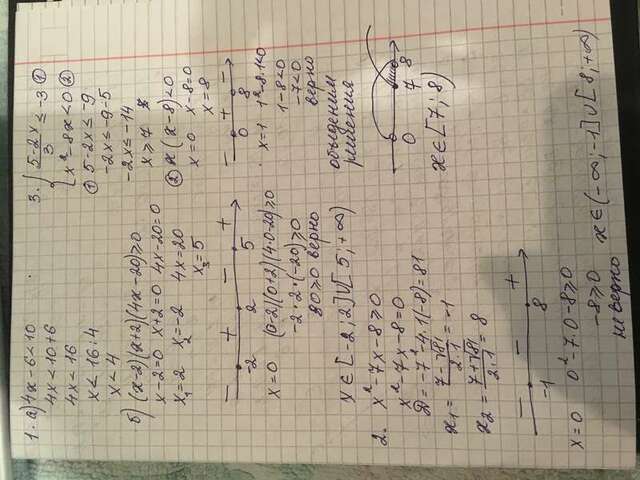 1. a) 4x-6<10
4x<10+6
4x<16
x<16:4
x<4
б) (x-2)(x+2)(4x-20)≥0
x-2=0 x+2=0 4x-20=0
x₁=2 x₂=-2 4x=20
x₃=5
- + - +
-2 2 5
x=0 (0-2)(0+2)(4·0-20)≥0
-2·2·(-20)≥0
80≥0 верно
x∈[-2;2]∪[5;+∞)
2. x²-7x-8≥0
x²-7x-8=0
D=-7²-4·1(-8)=81
x₁=(7-√81)/(2·1)=-1
x₂=(7+√81)/(2·1)=8
- - +
-1 8
x=0 0²-7·0-8≥0
-8≥0
не верно x∈(-∞;-1]∪[8;+∞)
3. { (5-2x)/3≤-3 ①
x²-8x<0 ②
① 5-2x≤-9
-2x≤-9-5
-2x≤-14
x≥7
② x(x-8)<0
x=0 x-8=0
x=8
- + -
0 8
x=1 1²-8·1<0
1-8<0
-7<0
верно
объединим
решения
0 7 8
x∈[7;8)